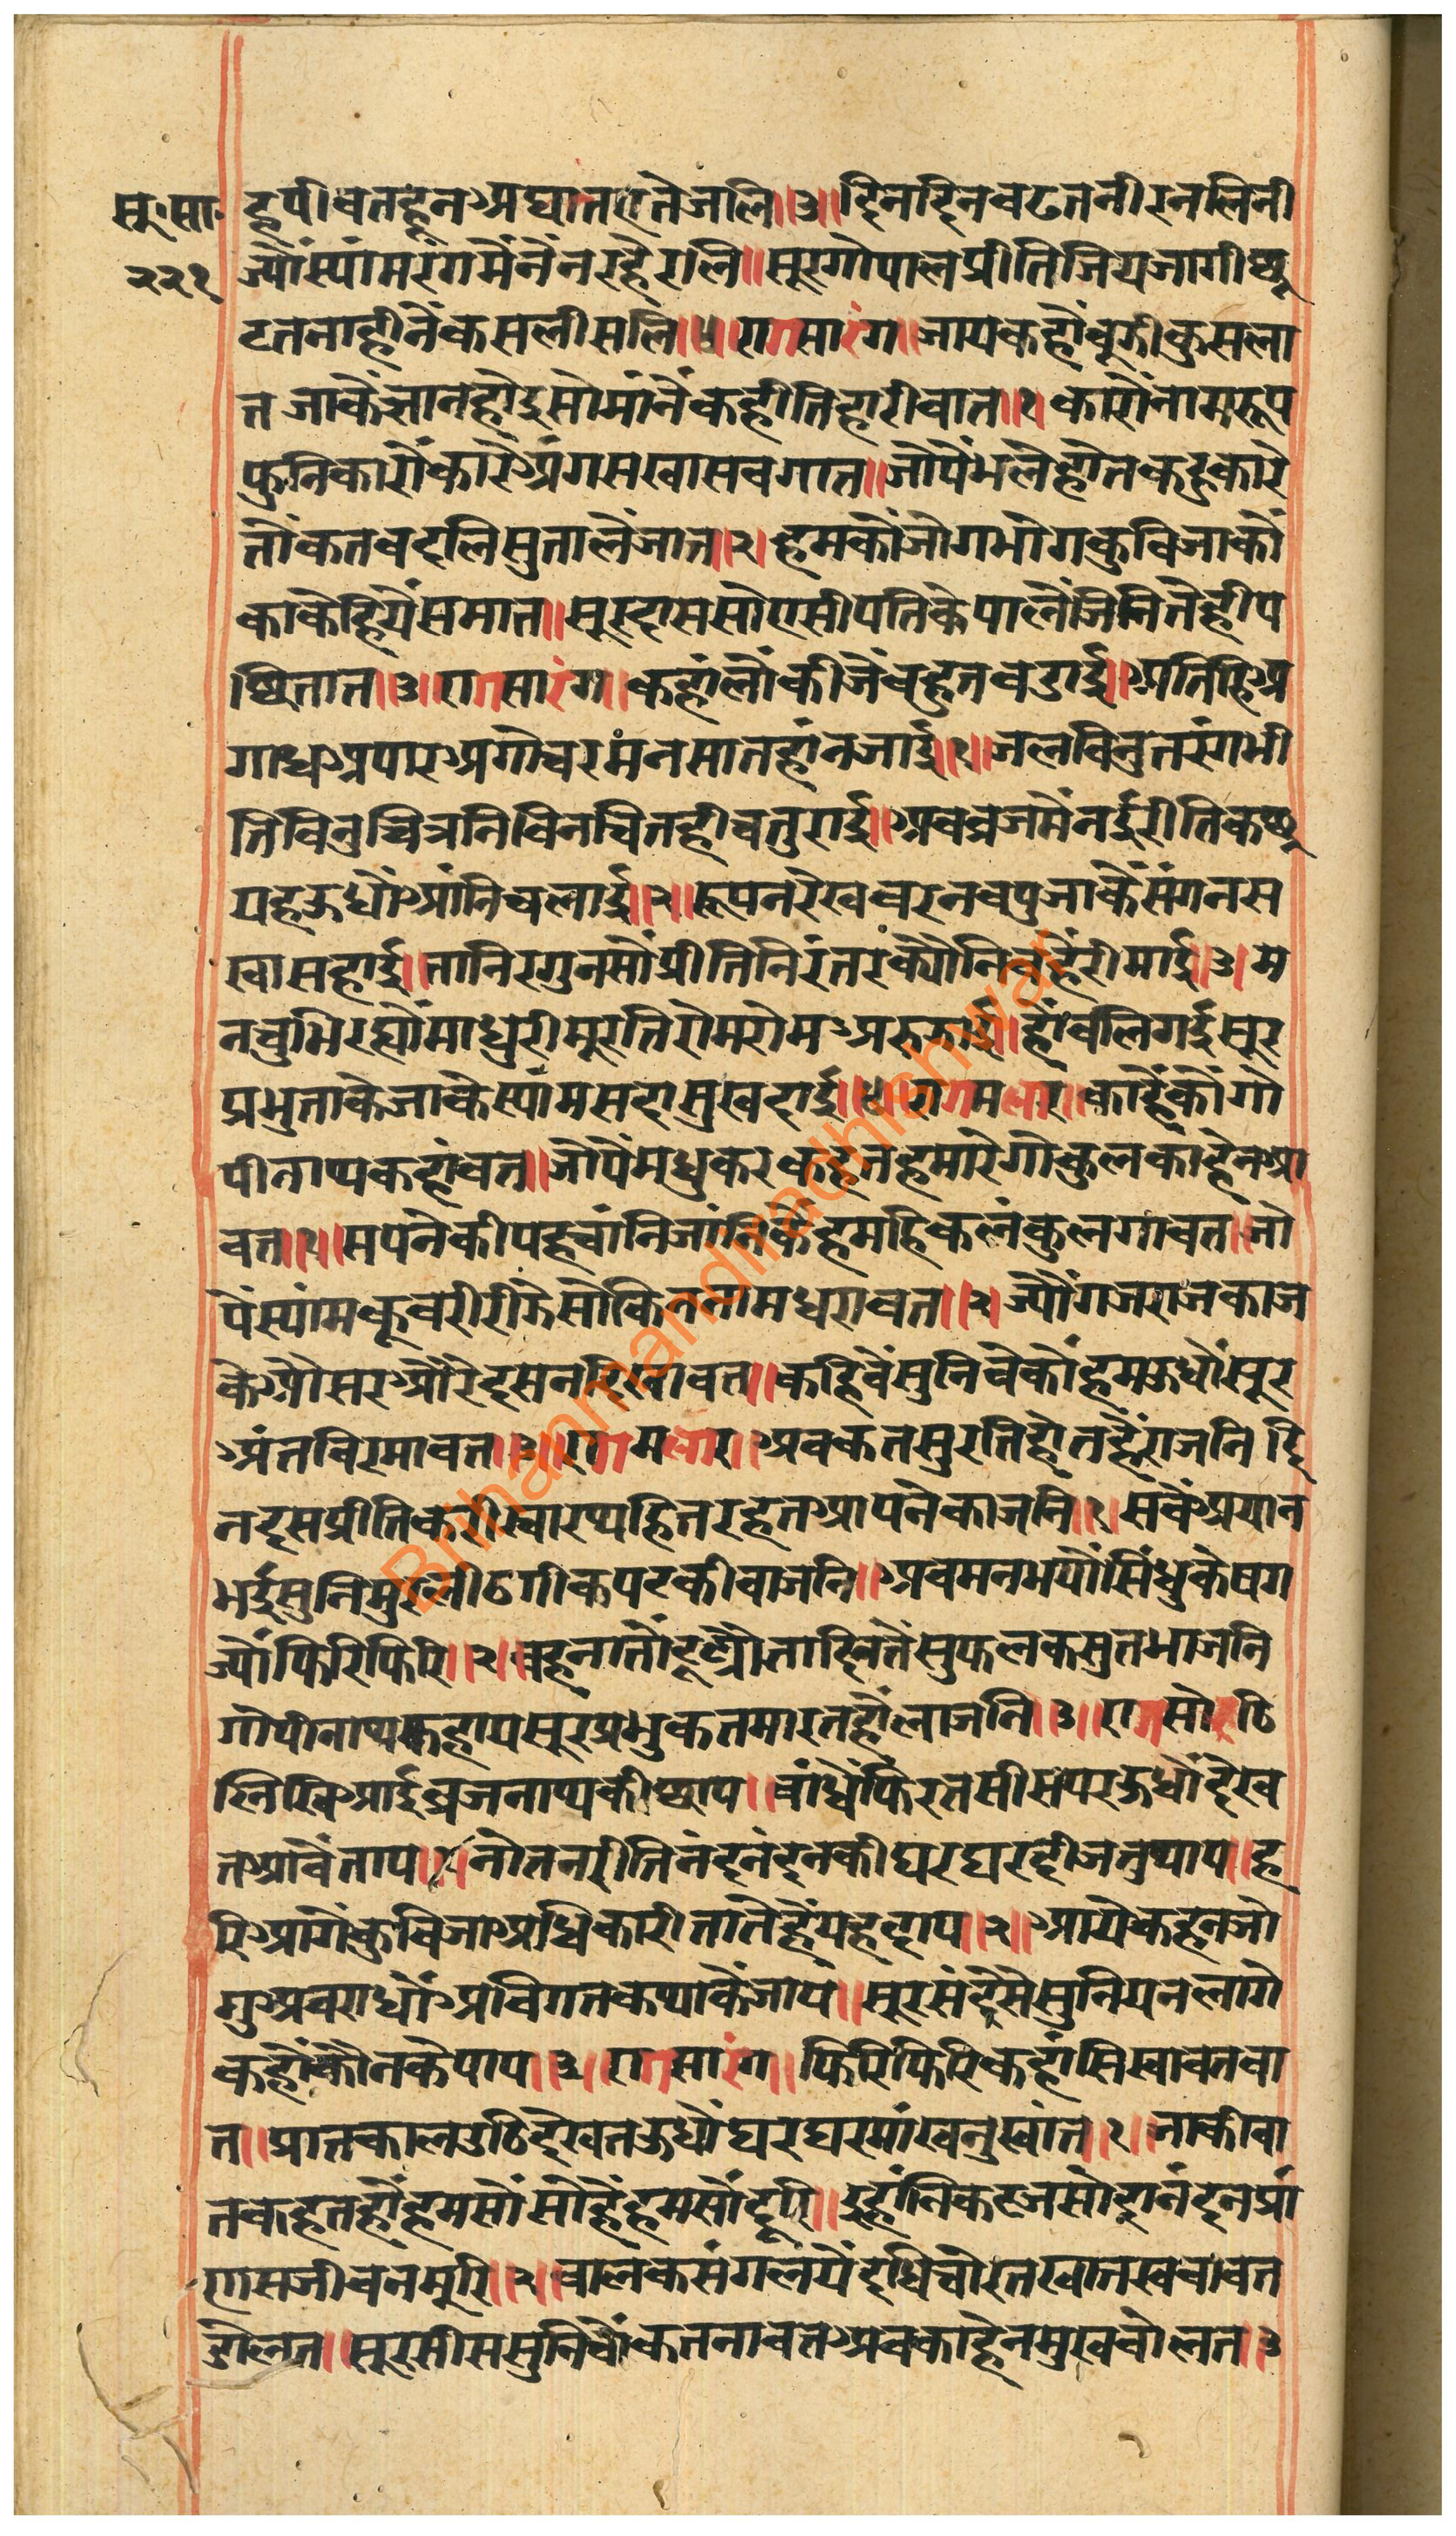 सू॰सा॰
२२१
हूपीवतहूनअघातएतेजलि॥३॥दिनदिनबढतनीरनलिनी
ज्यौंस्यांमरंगमैंनैंनरहेरलि॥सूरगोपालप्रीतिजियजागीछू
टतनाहीनैंकसलीसलि॥४॥रागसारंग॥जायकहौबूझीकुसला
तजाकैंज्ञानहोइसोमांनैंकहीतिहारीबात॥१॥कारोनामरूप
फुनिकारौंकारेअंगसखासबगात॥जोपैंभलेहोतकहुकारे
तौंकतबदलिसुतालैंजात॥२॥हमकौंजोगभोगकुबिजाकौं
काकेहियैंसमात॥सूरदाससोएसीपतिकेपालैंजिनितेहीप
छितात॥३॥रागसारंग॥कहांलौंकीजैंबहुतबडाई॥अतिहिअ
गाधअपारअगोचरमंनसातहांनजाई॥१॥जलबिनुतरंगभी
तिबिनुचित्रनिबिनचितहीचतुराई॥अबब्रजमैंनईरीतिकछू
यहऊधौंआंनिचलाई॥२॥रूपनरेखबरनबपुजाकैंसंगनस
खासहाई॥तानिरगुनसौंप्रीतिनिरंतरक्यौनिबहैंरीमाई॥३॥म
नचुभिरह्यौंमाधुरीमूरतिरोमरोमअरुझाई॥हौंबलिगईसूर
प्रभुताकेजाकेस्यांमसदासुखदाई॥४॥रागमलार॥काहैंकौंगो
पीनाथकहांवत॥जौपैंमधुकरकहतहमारेगोकुलकाहेनआ
वत॥१॥सपनेकीपहचांनिजांनिकैंहमहिकलंकुलगावत॥जो
पैंस्यांमकूबरीरीझेसोकितनामधरावत॥२॥ज्यौंगजराजकाज
केऔसरऔरेदसनदिखावत॥कहिवैंसुनिवेकौंहमऊधौंसूर
अंतबिरमावत॥३॥रागमलार॥अबकतसुरतिहोतहैंराजनिदि
नदसप्रीतिकरीस्वारथहितरहेतआपनेकाजनि॥१॥सबैंअयान
भईसुनिमुरलीठगीकपटकीबाजनि॥अबमनभयौंसिंधुकेषग
ज्यौंफिरिफिरि॥२॥बहूनातौंटूट्यौताहितैंसुफलकसुतभाजनि
गोपीनाथकहायसूरप्रभुकतमारतहौंलाजनि॥३॥रागसोरठि
लिखिआईब्रजनाथकीछाप॥बांधैंफिरतसीसपरऊधौंदेख
तआवैंताप॥१॥नौतनरीतिनंदनंदनकीघरघरदीजतुथाप॥ह
रिआगेंकुबिजाअधिकारीतातेहैंयहदाप॥२॥आयेकहनजो
गुअवराधौंअविगतकथाकैंजाप॥सूरसंदेसेसुनियनलागे
कहौंकौनकेपाप॥३॥रागसारंग॥फिरिफिरिकहांसिखावतबा
त॥प्रातकालउठिदेखतऊधौंघरघरमांखनुखांत॥१॥जाकीबा
तकहतहौंहमसौंसोहैंहमसौंदूरि॥इहांनिकटजसोदानंदनप्रां
णसजीवनमूरि॥२॥बालकसंगलयैंदधिचोरतखातखवावत
डोलत॥सूरसीससुनिचौंकतनावतअबकाहेनमुखबोलत॥३